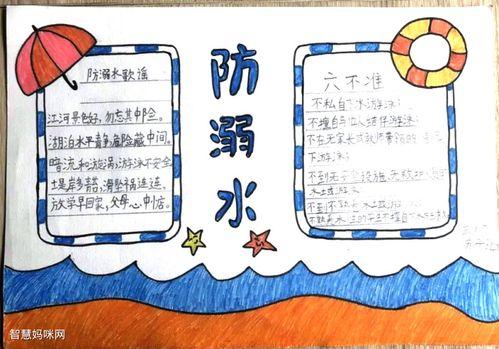 防溺水
防溺水歌谣
江河景色好，勿忘其中险。
湖泊水平静，危险藏中间。
暗流和漩涡，游泳不安全
堤岸多青苔，滑坠祸连连。
放学早回家，父母心中悦。
六不准
不私自下水游泳；
不擅自与他人结伴游泳；
不在无家长或教师带领的
下游泳；
不到无安全设施、无救
水土或游泳
不到不熟悉水土或游
不熟悉水 的学生不擅自下水
智慧妈咪网